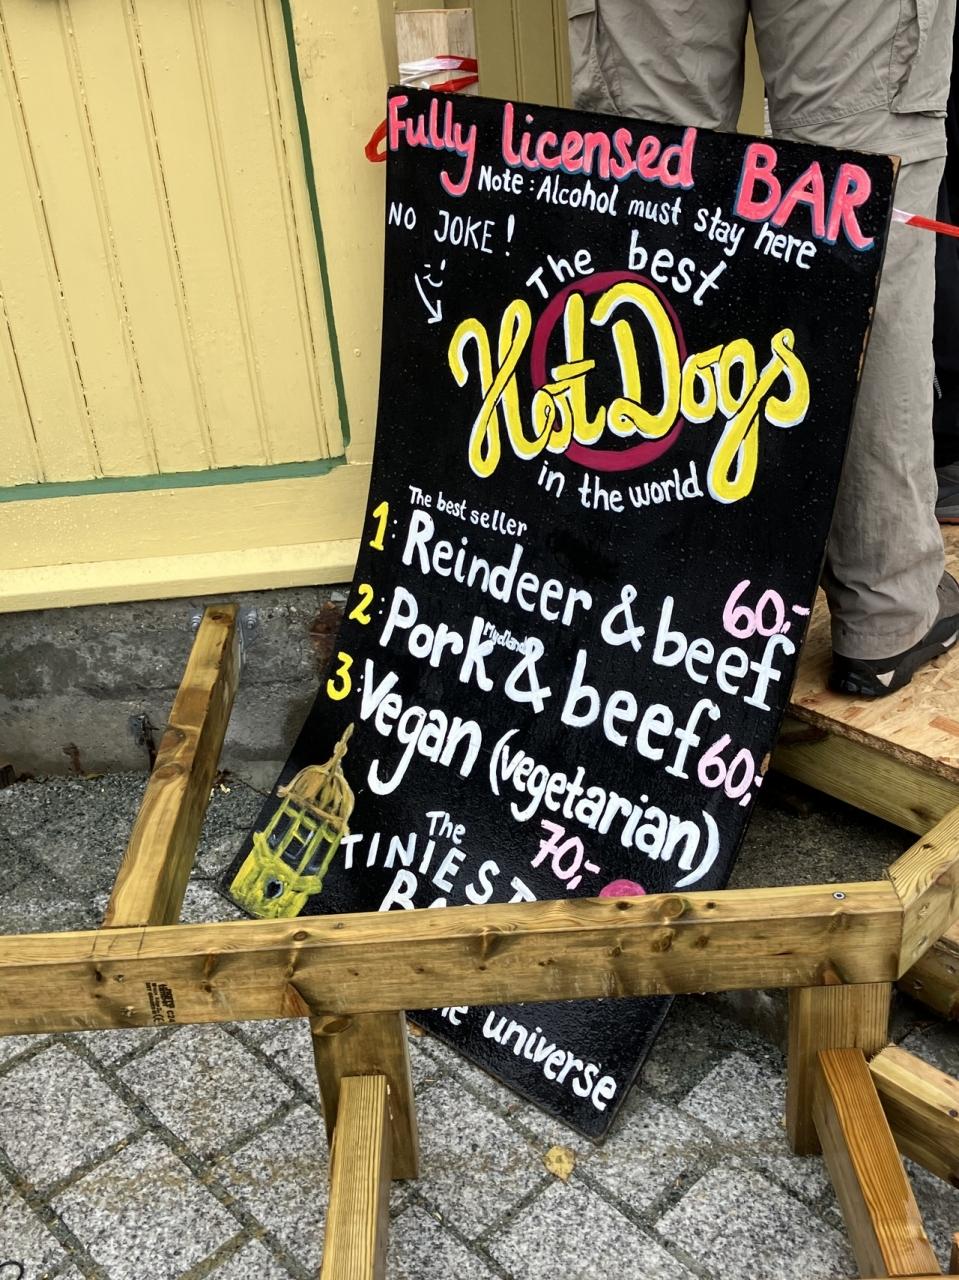 Fully licensed BAR
Note: Alcohol must stay here
NO JOKE!
The best
Hot Dogs
in the world
The best seller
1: Reindeer & beef
60,-
2: Pork & beef 60,-
3: Vegan (vegetarian)
70,-
The
TINIEST
universe